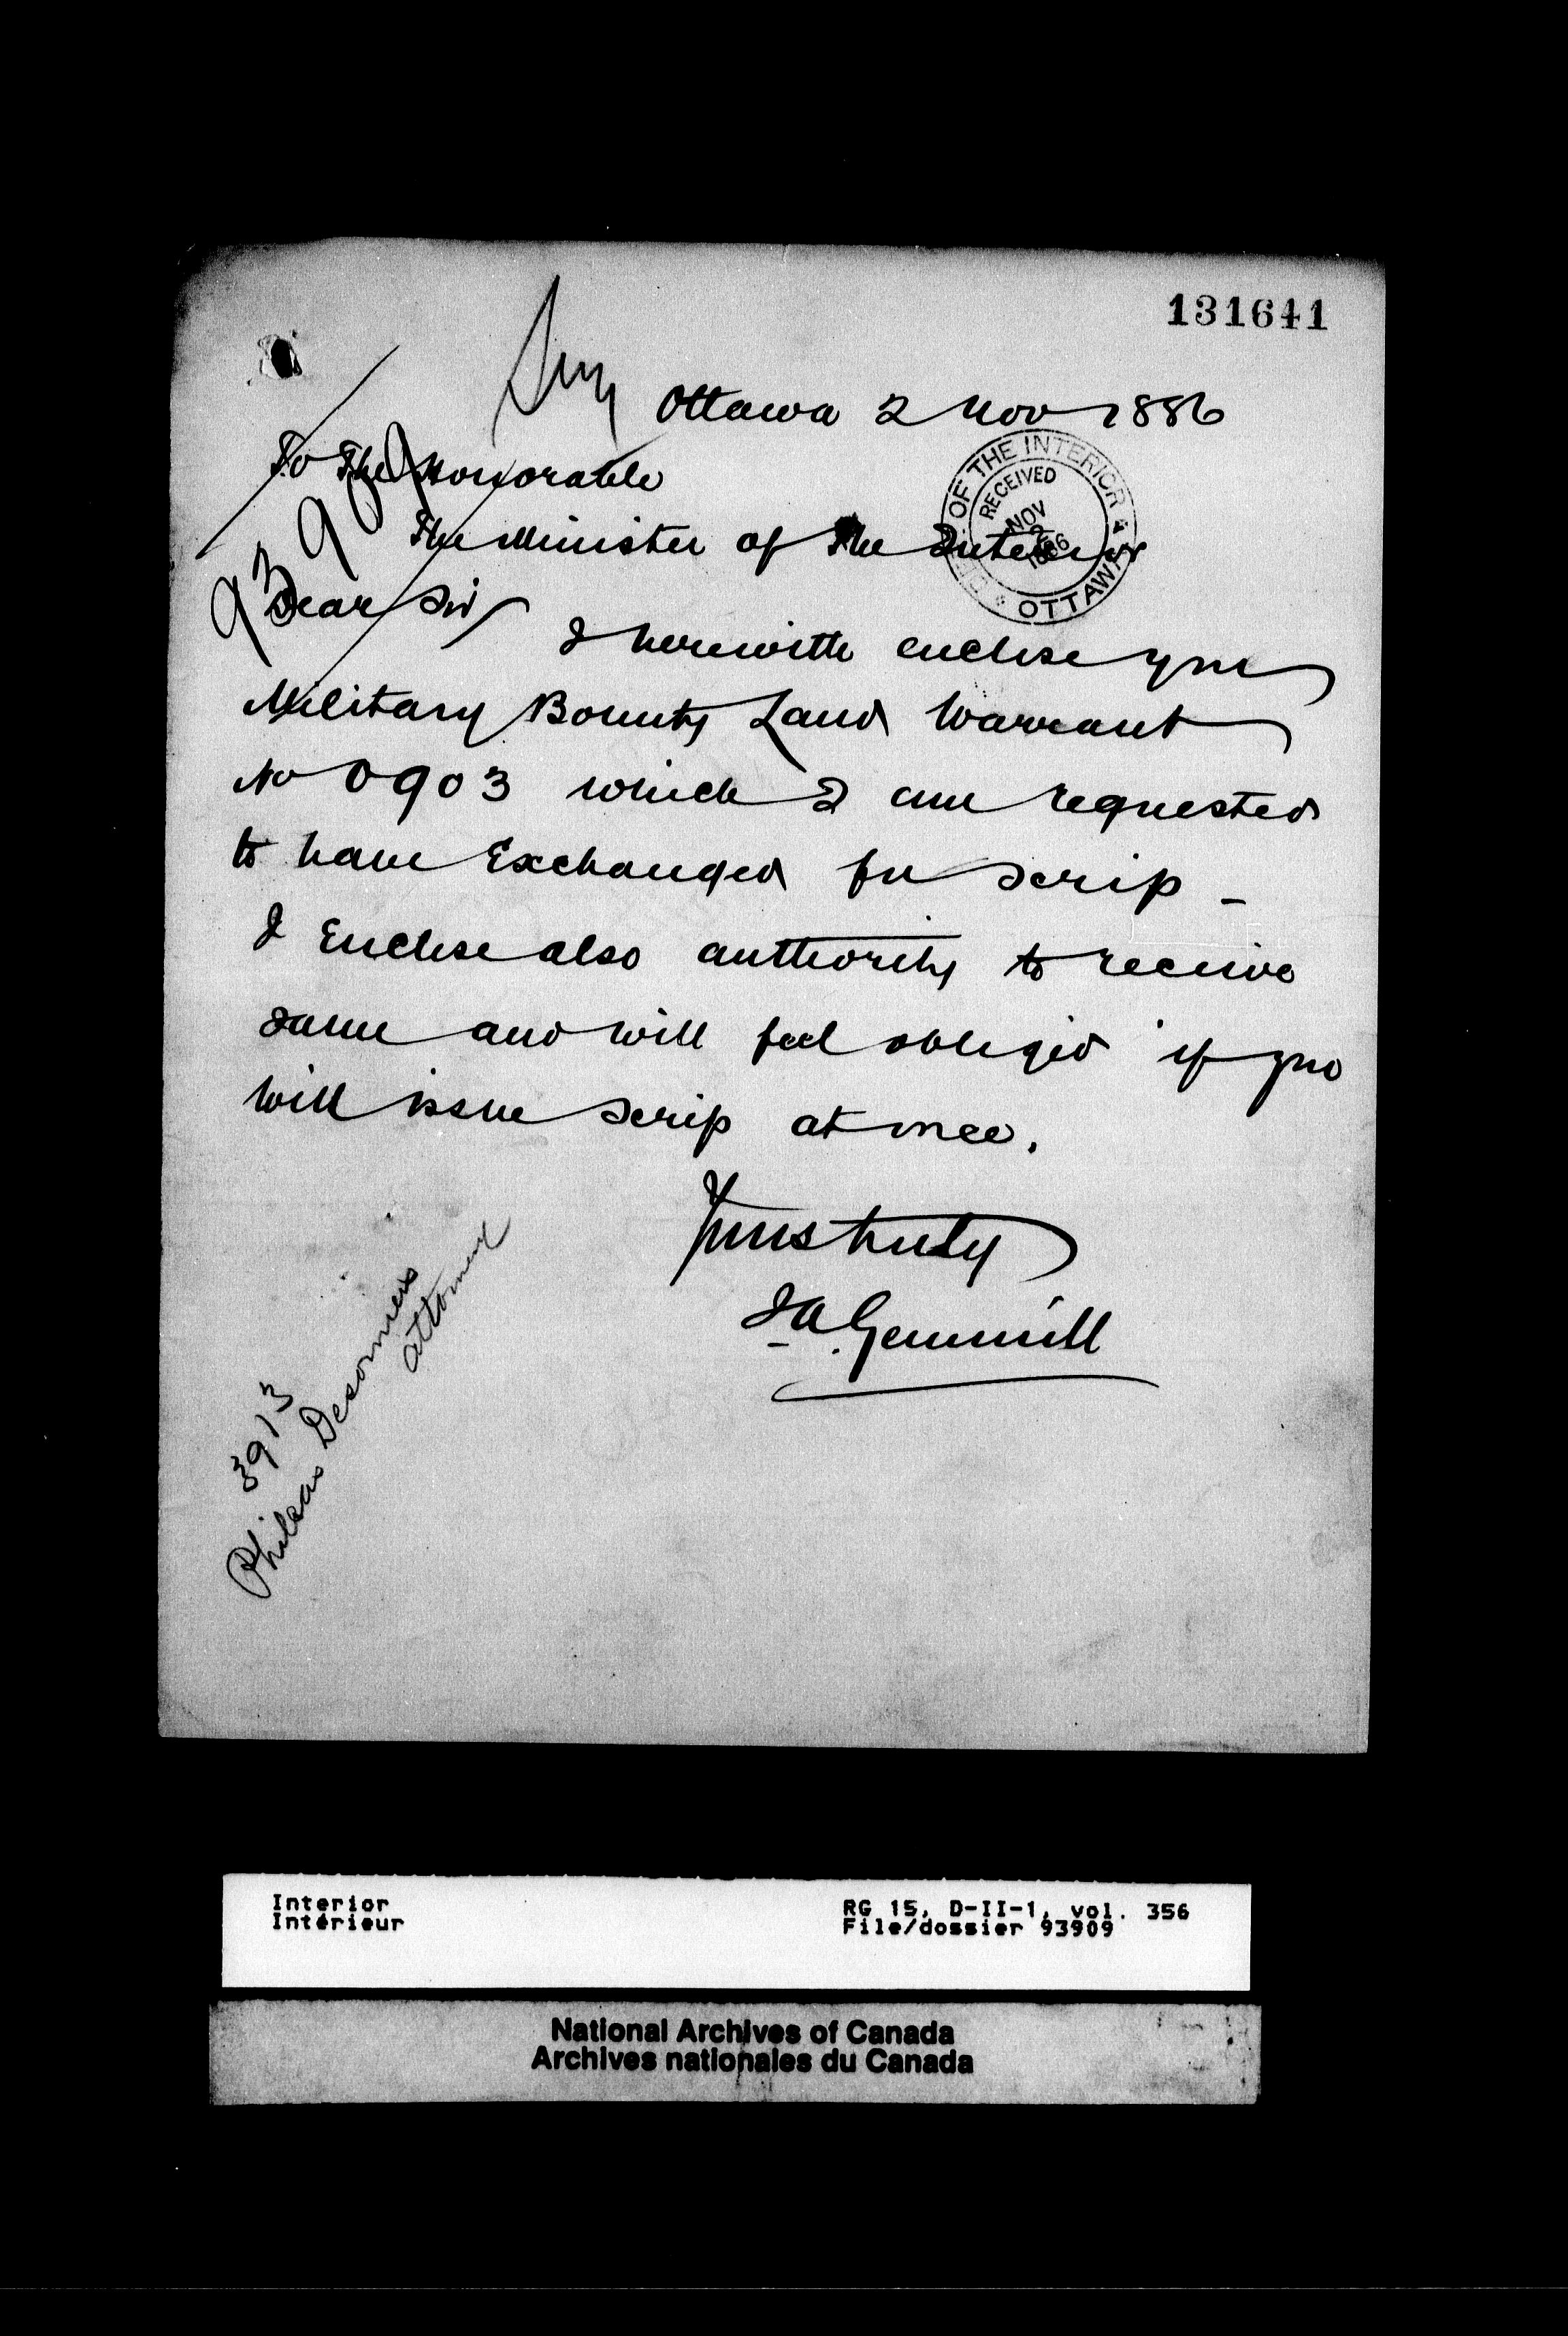 131641
Ottawa 2 Nov 1886
To The Honorable
The Minister of The Interior
DEPT. OF THE INTERIOR
RECEIVED
NOV
2
1886
OTTAWA
93909
Dear Sir
I herewith enclose you
Military Bounty Land Warrant
No 0903 which I am requested
to have Exchanged for scrip _
I Enclose also authority to receive
same and will feel obliged if you
will issue scrip at once.
Yours truly
J A. Gemmill
3913
Phileas Desormiers
attorney
Interior
Intérieur
RG 15, D-II-1, vol. 356
File/dossier 93909
National Archives of Canada
Archives nationales du Canada